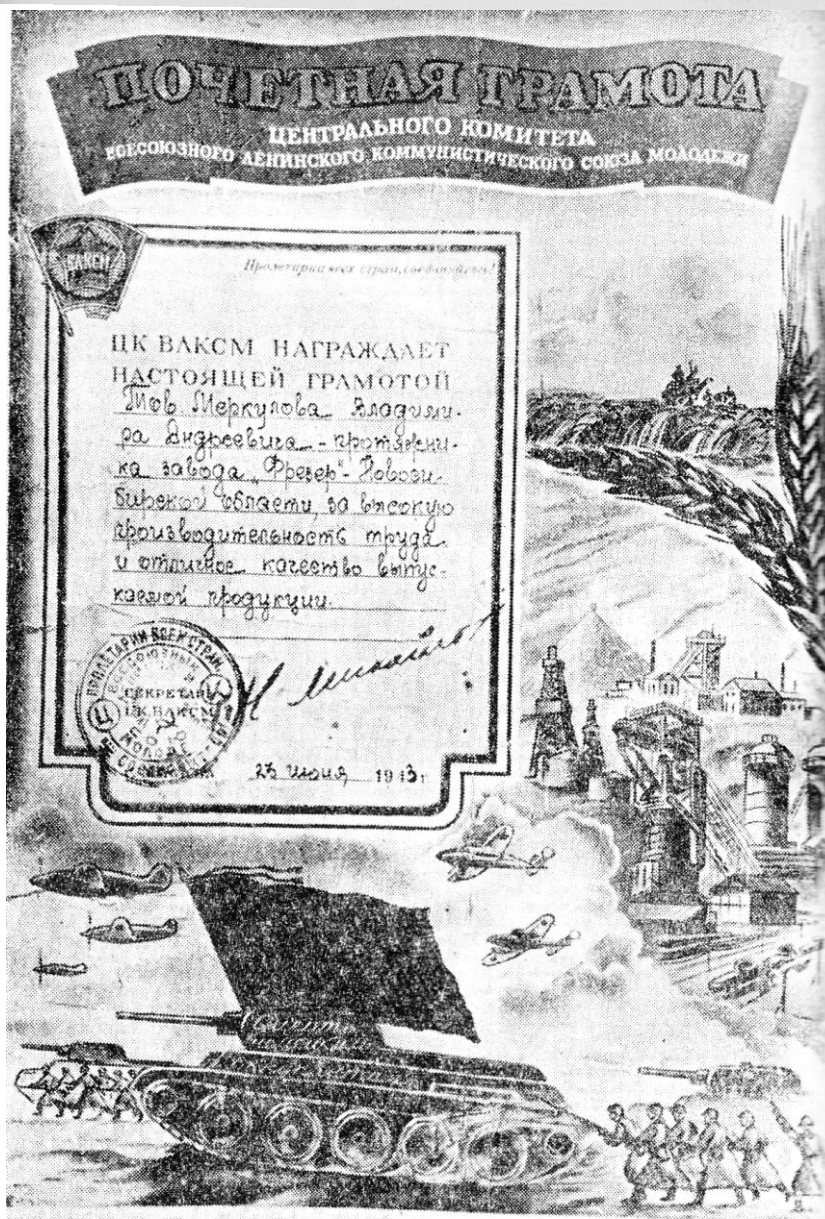 ПОЧЕТНАЯ ГРАМОТА
ЦЕНТРАЛЬНОГО КОМИТЕТА
ВСЕСОЮЗНОГО ЛЕНИНСКОГО КОММУНИСТИЧЕСКОГО СОЮЗА МОЛОДЕЖИ
ВЛКСМ
Пролетарии всех стран, соединяйтесь!
ЦК ВЛКСМ НАГРАЖДАЕТ
НАСТОЯЩЕЙ ГРАМОТОЙ
Тов Меркулова Владими-
ра Андреевича - протяжни-
ка завода „Фрезер"- Новоси-
бирской области, за высокую
производительность труда
и отличное качество выпус-
каемой продукции.
ПРОЛЕТАРИИ ВСЕХ СТРАН
СЕКРЕТАРЬ
ЦК ВЛКСМ
23 июня 1943 г